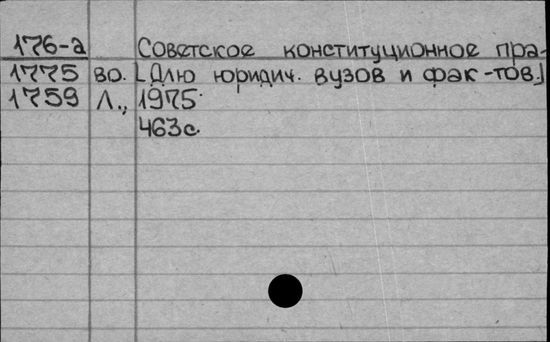 176-а Советское конституционное пра-
1775 во. [Длю юридич. вузов и фак-тов]
1759 Л., 1975.
463с.